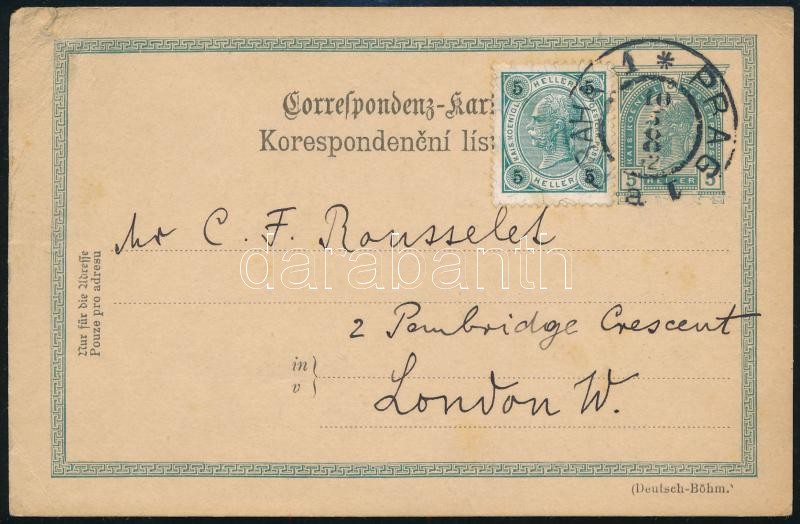 Correspondenz-Kar
Korespondenční lís
5 HELLER 5
KAIS. KOENIGL.
5 HELLER 5
PRAG 1
PRAHA 1
10
5 HELLER 5
Mr C. F. Rousselet
darabanth
2 Pembridge Crescent
in
v
London W.
Nur für die Adresse
Pouze pro adresu
(Deutsch-Böhm.)